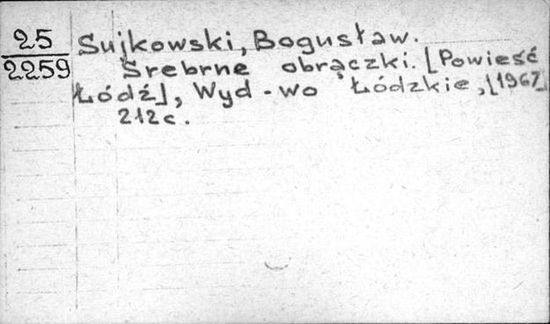 25
2259
Sujkowski, Bogusław.
Srebrne obrączki. [Powieść
Łódź], Wyd-wo Łódzkie, [1967]
212 c.